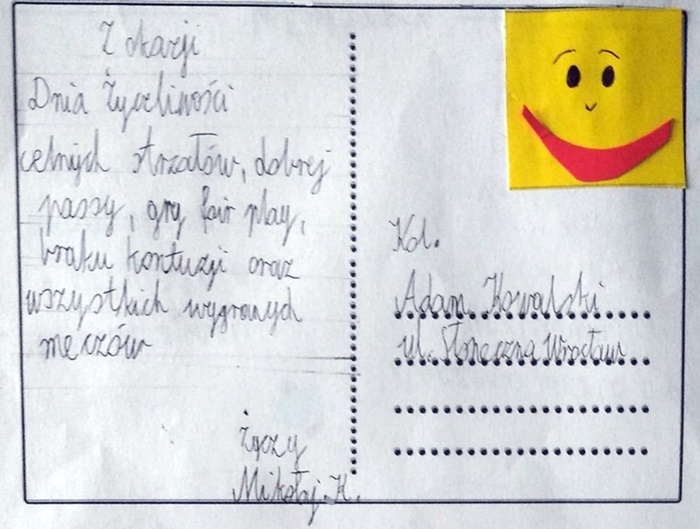 Z okazji
Dnia Życzliwości
celnych strzałów, dobrej
passy, gry fair play,
braku kontuzji oraz
wszystkich wygranych
meczów
Życzy
Mikołaj K.
Kol.
Adam Kowalski
ul. Słoneczna Wrocław